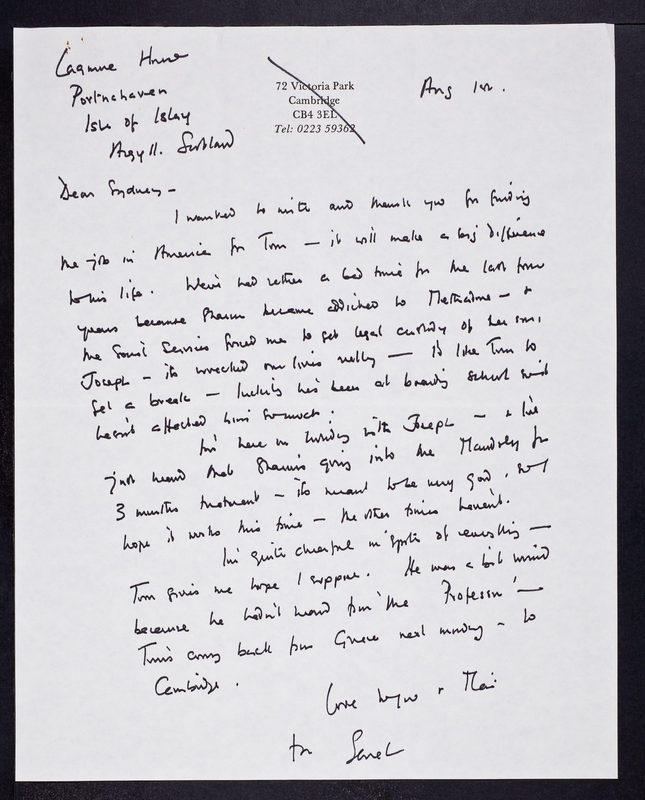 House
Portnahaven
Isle of Islay
Argyll. Scotland
72 Victoria Park
Cambridge
CB4 3EL
Tel: 0223 59362
Aug 1st.
Dear Sydney –
I wanted to write and thank you for finding
the job in America for Tom – it will make a big difference
to his life. We've had rather a bad time for the last four
years because Sharon became addicted to Methadone – &
the Social Services forced me to get legal custody of her son,
Joseph – its wrecked our lives really – I'd like Tom to
get a break – luckily he's been at boarding school so it
hasn't affected him so much.
I'm here on holiday with Joseph – & I've
just heard that Sharon's going into the Maudsley for
3 months treatment – its meant to be very good, so I
hope it works this time – the other times haven't.
I'm quite cheerful in spite of everything –
Tom gives me hope I suppose. He was a bit worried
because he hadn't heard from 'the Professor' –
Tom's coming back from Greece next monday – to
Cambridge.
Love to you &
from